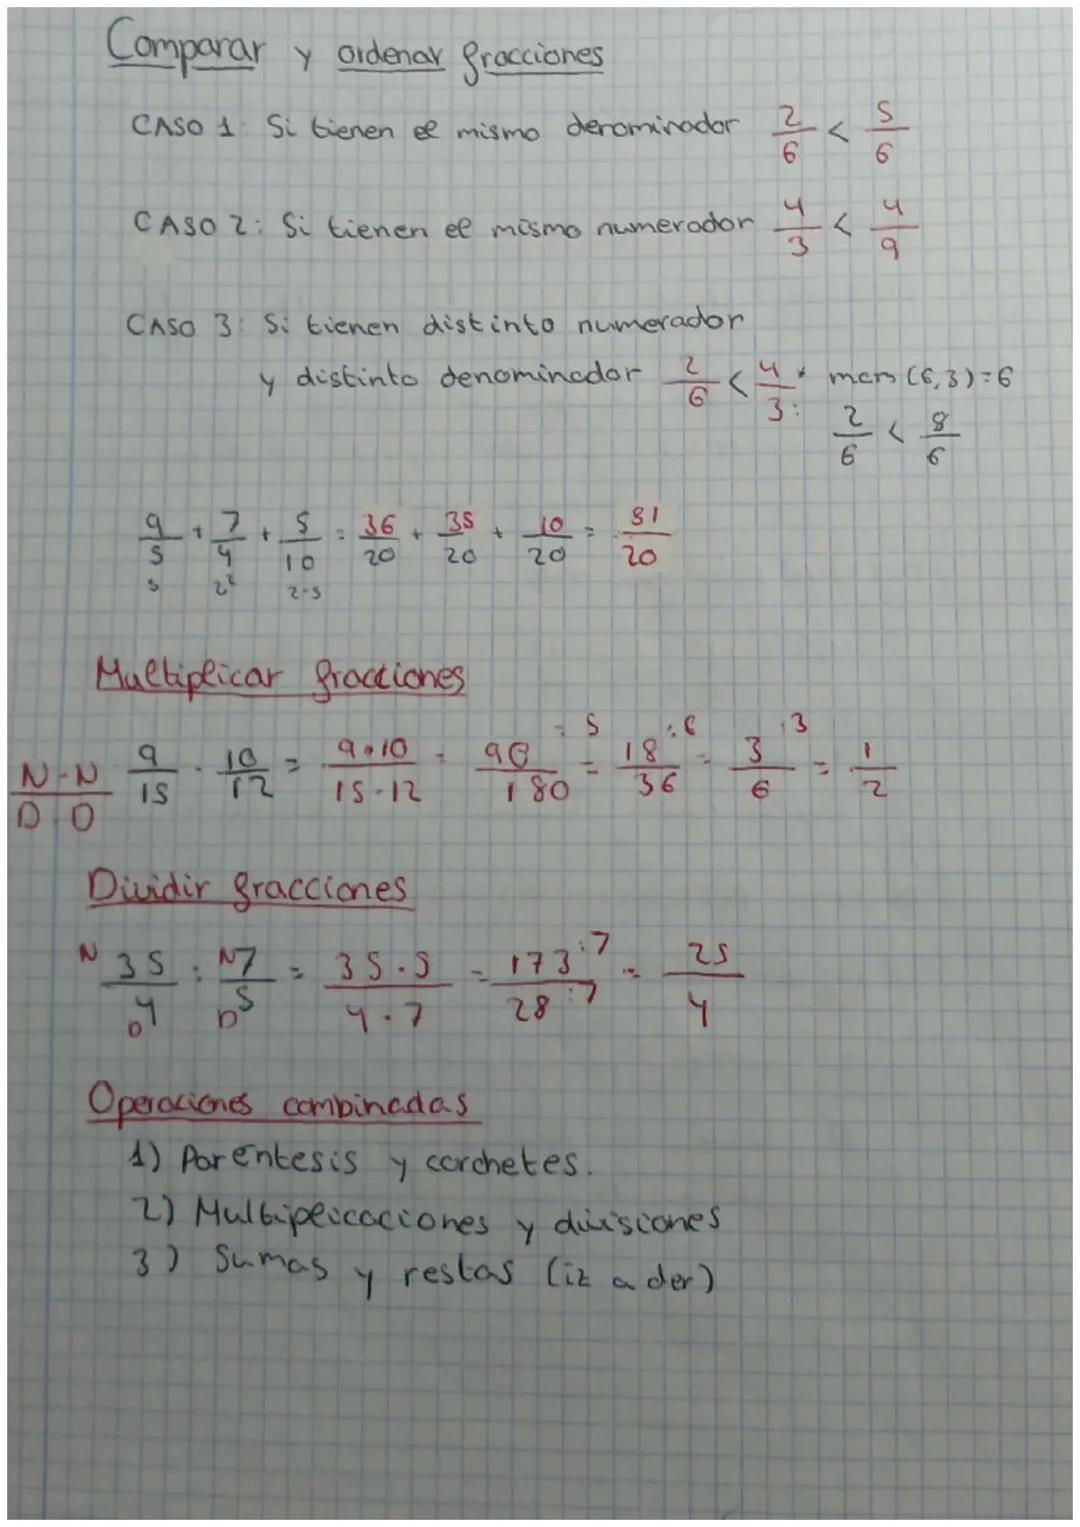 Comparar y ordenar fracciones
CASO 1: Si tienen el mismo denominador 2/6 < 5/6
CASO 2: Si tienen el mismo numerador 4/3 < 4/9
CASO 3: Si tienen distinto numerador
y distinto denominador 2/6 < 4/3 mcm (6,3)=6
2/6 < 8/6
9/5 + 7/4 + 5/10 = 36/20 + 35/20 + 10/20 = 81/20
5 2² 2·5
Multiplicar fracciones
N·N/D·D 9/15 · 10/12 = 9·10/15·12 = 90/180 :5 = 18/36 :6 = 3/6 :3 = 1/2
Dividir fracciones
N 35/D 4 : N 7/D 5 = 35·5/4·7 = 173:7/28:7 = 25/4
Operaciones combinadas
1) Parentesis y corchetes.
2) Multiplicaciones y divisiones
3) Sumas y restas (iz a der)